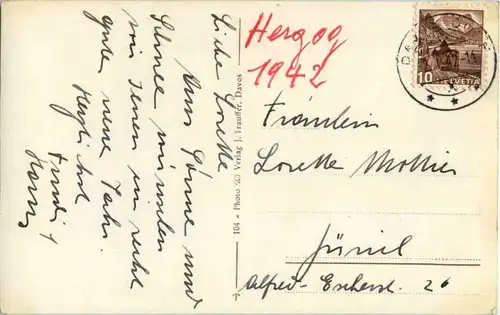 Liebe Lorette
Aus Sonne und
Schnee wünschen
wir Ihnen ein recht
gutes neues Jahr.
Herzlichst
Trudi &
Hans
104 - Photo & Verlag J. Trauffer, Davos
Herzog
1942
10 HELVETIA
Fräulein
Lorette Mottier
Zürich
Alfred-Escherst. 26